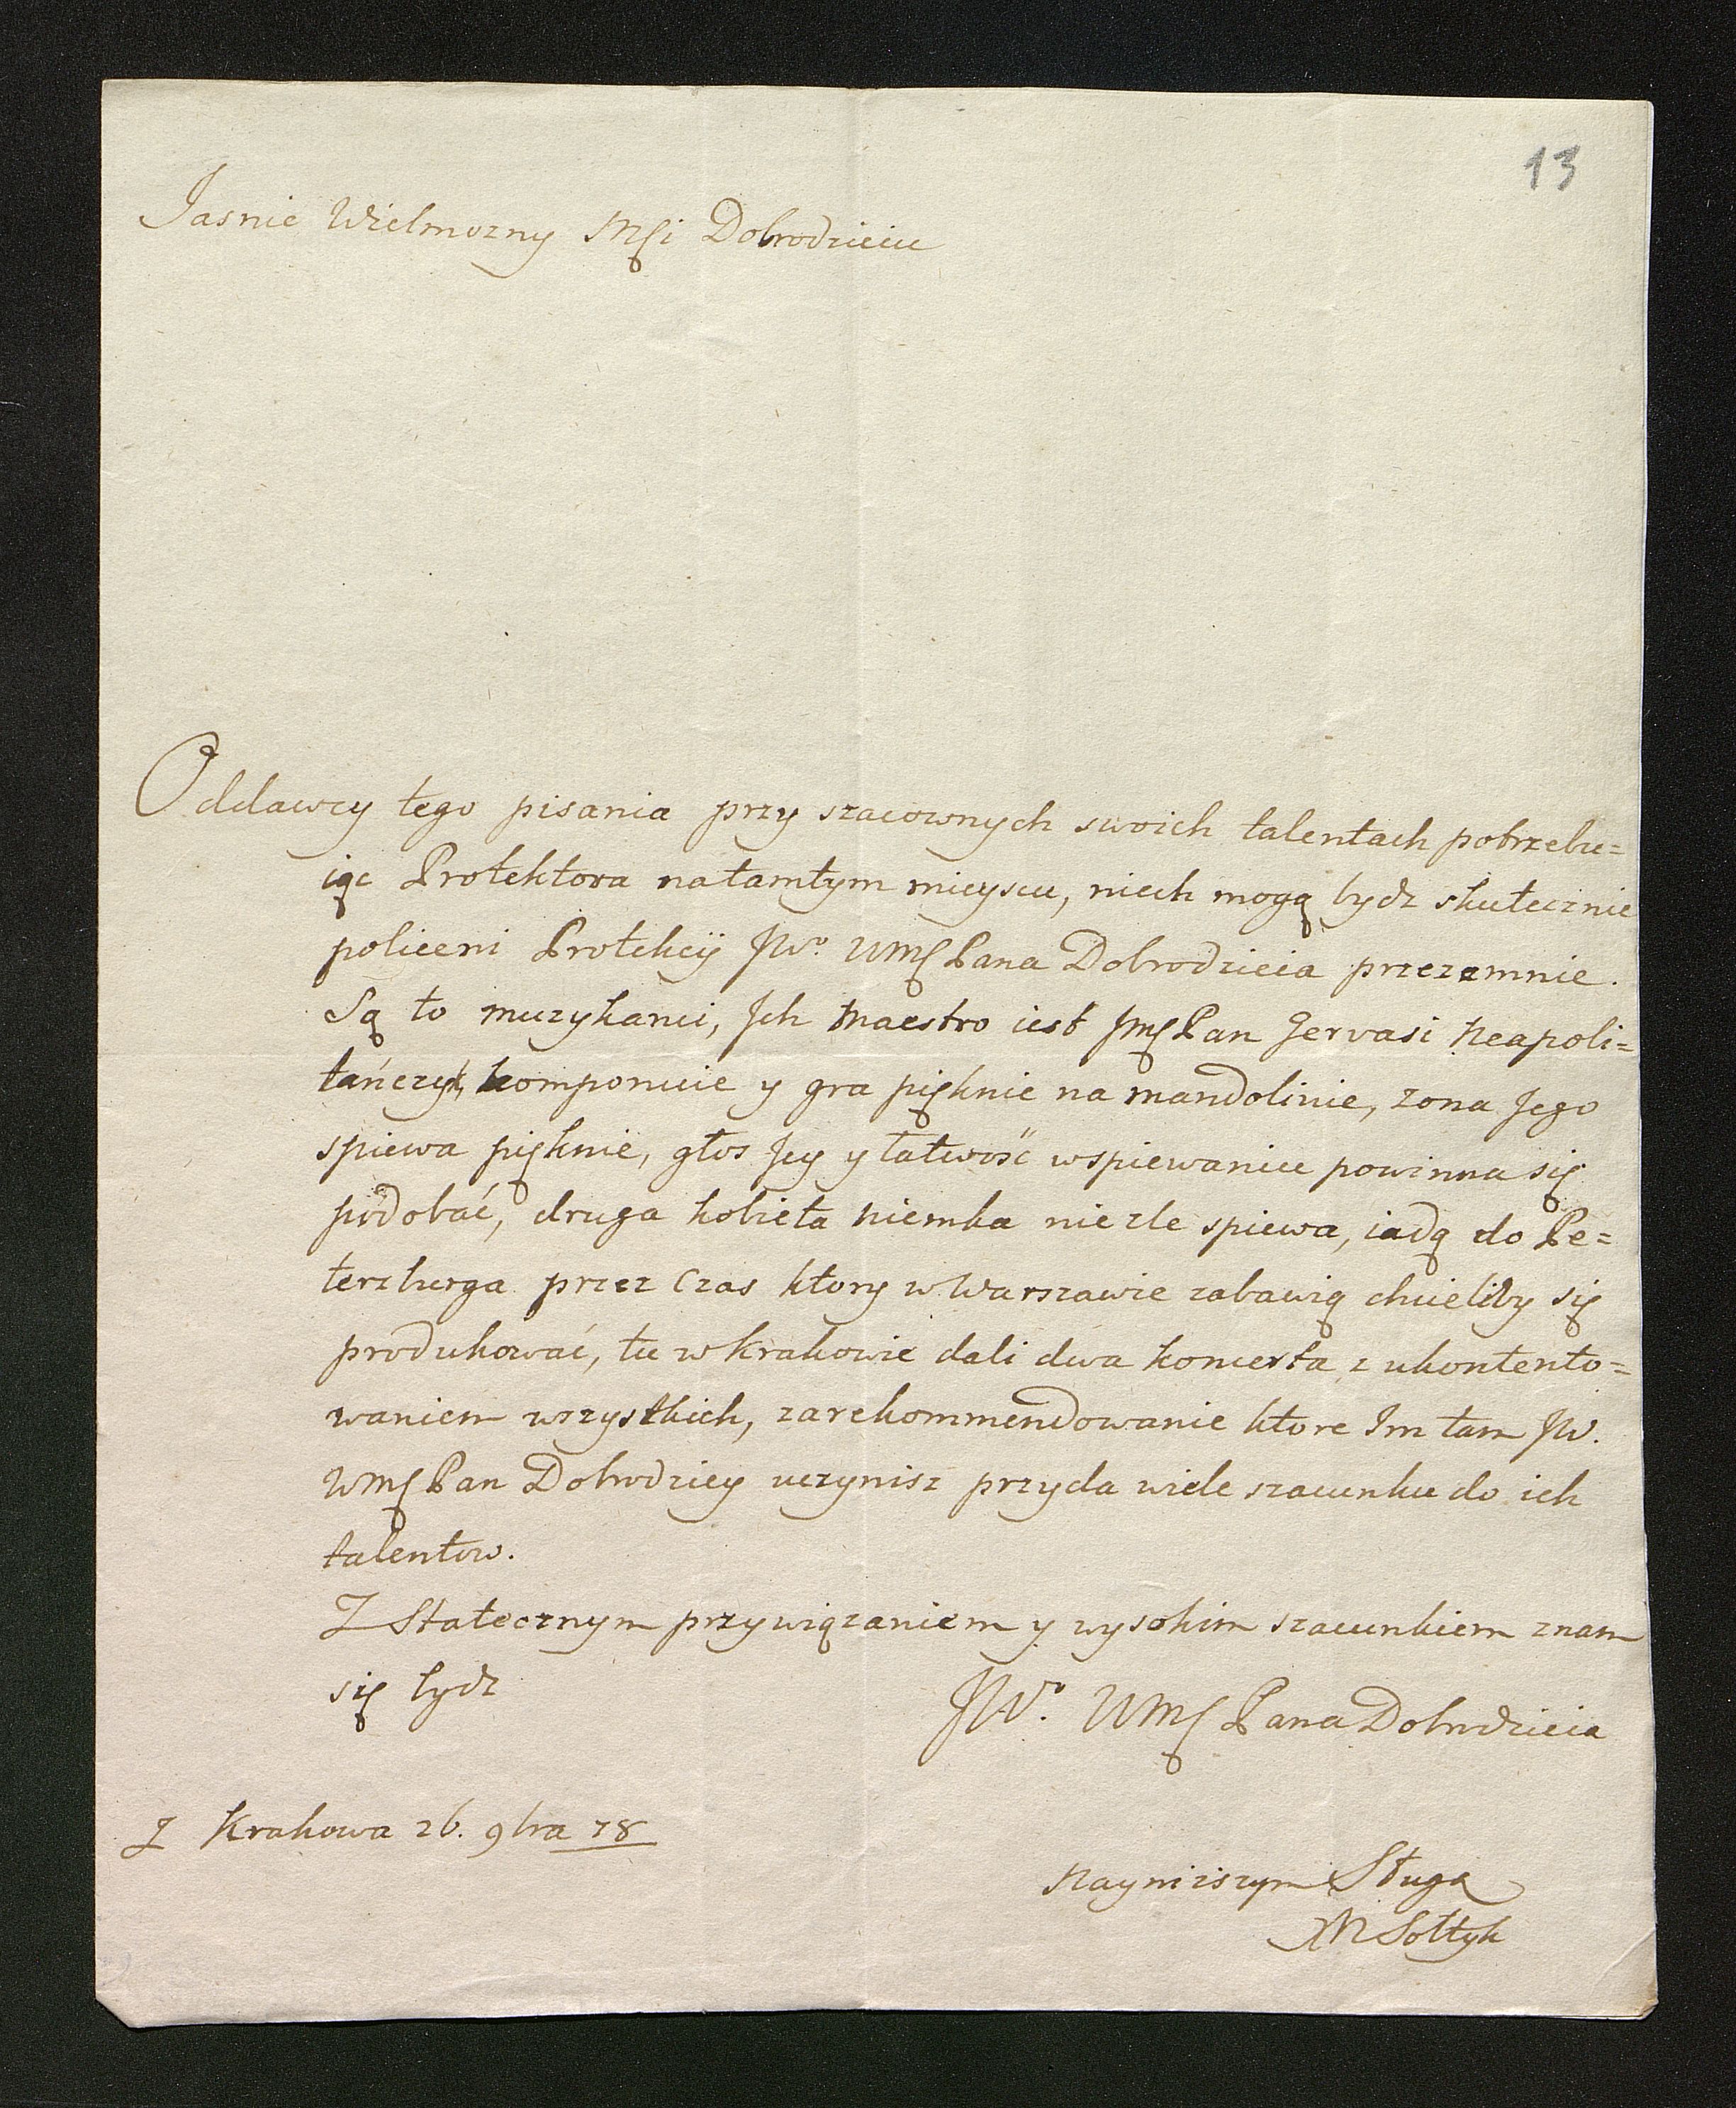 13
Jasnie Wielmozny Mći Dobrodzieiu
Oddawcy tego pisania przy szacownych swoich talentach potrzebu=
iąc Protektora natamtym mieyscu, niech mogą bydz skutecznie
policeni Protekcÿ JWo. WMć Pana Dobrodzieia przezemnie.
Są to muzykanci, Jch Maestro iest Jmć Pan Gervasi Neapoli=
tańczyk, komponuie y gra pięknie na mandolinie, zona Jego
spiewa pięknie, głos Jey y łatwość wspiewaniu powinna się
podobać, druga kobieta niemka nie zle spiewa, iadą do Pe=
terzburga przez Czas ktory w Warszawie zabawią chcieliby się
produkować, tu w Krakowie dali dwa koncerta z ukontento=
waniem wszystkich, zarekommendowanie ktore Im tam JW.
WMć Pan Dobrodziey uczynisz przyda wiele szacunku do ich
talentow.
Z Statecznym przywiązaniem y wysokim szacunkiem znam
się bydz
JWo. WMć Pana Dobrodzieia
Z Krakowa 26. 9bra 78
Nayniższym Sługą
M Sołtyk